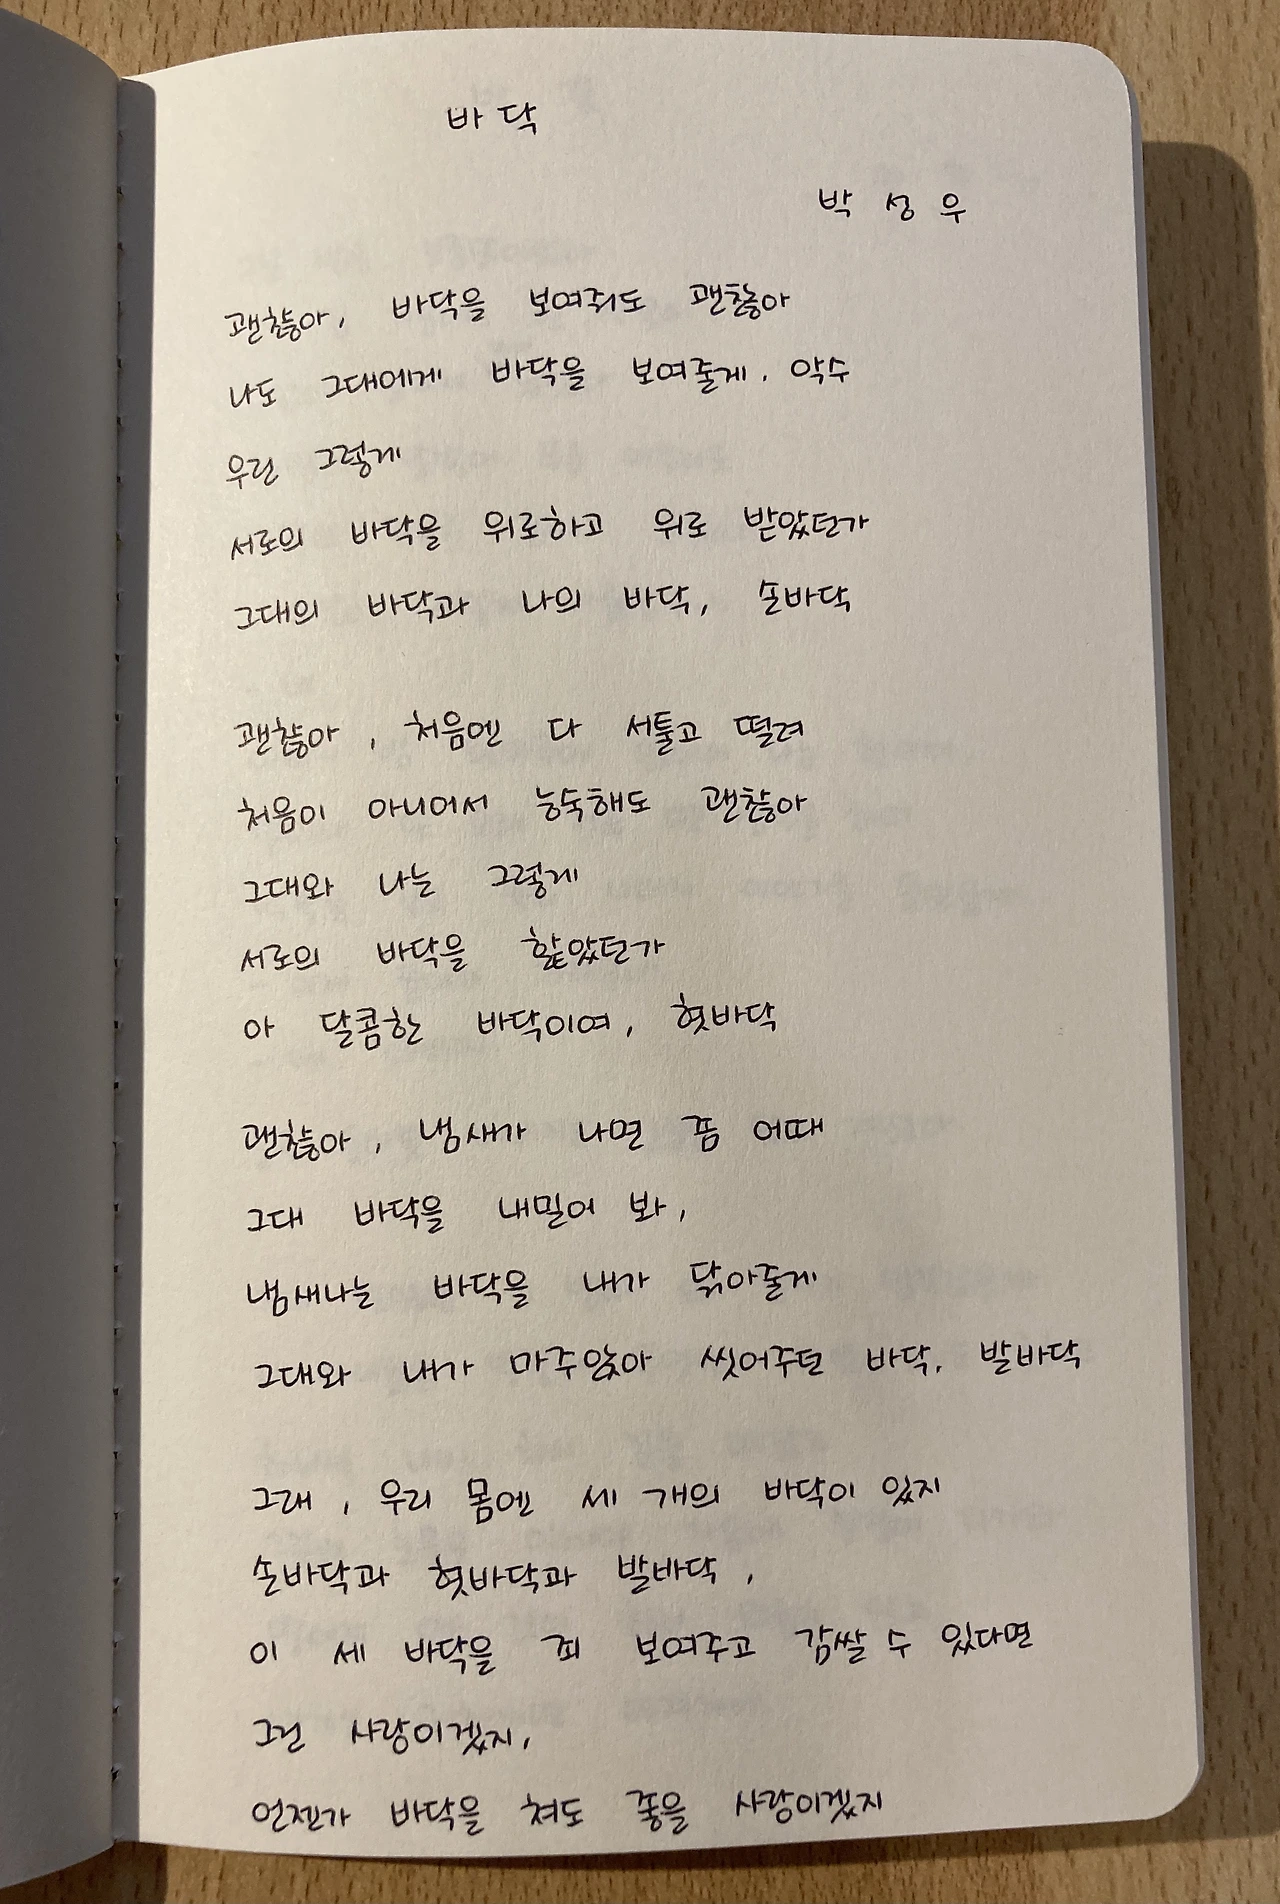 바닥
박성우
괜찮아, 바닥을 보여줘도 괜찮아
나도 그대에게 바닥을 보여줄게. 악수
우린 그렇게
서로의 바닥을 위로하고 위로 받았던가
그대의 바닥과 나의 바닥, 손바닥
괜찮아, 처음엔 다 서툴고 떨려
처음이 아니어서 능숙해도 괜찮아
그대와 나는 그렇게
서로의 바닥을 핥았던가
아 달콤한 바닥이여, 혓바닥
괜찮아, 냄새가 나면 좀 어때
그대 바닥을 내밀어 봐,
냄새나는 바닥을 내가 닦아줄게
그대와 내가 마주앉아 씻어주던 바닥, 발바닥
그래, 우리 몸엔 세 개의 바닥이 있지
손바닥과 혓바닥과 발바닥,
이 세 바닥을 죄 보여주고 감쌀 수 있다면
그건 사랑이겠지,
언젠가 바닥을 쳐도 좋을 사랑이겠지